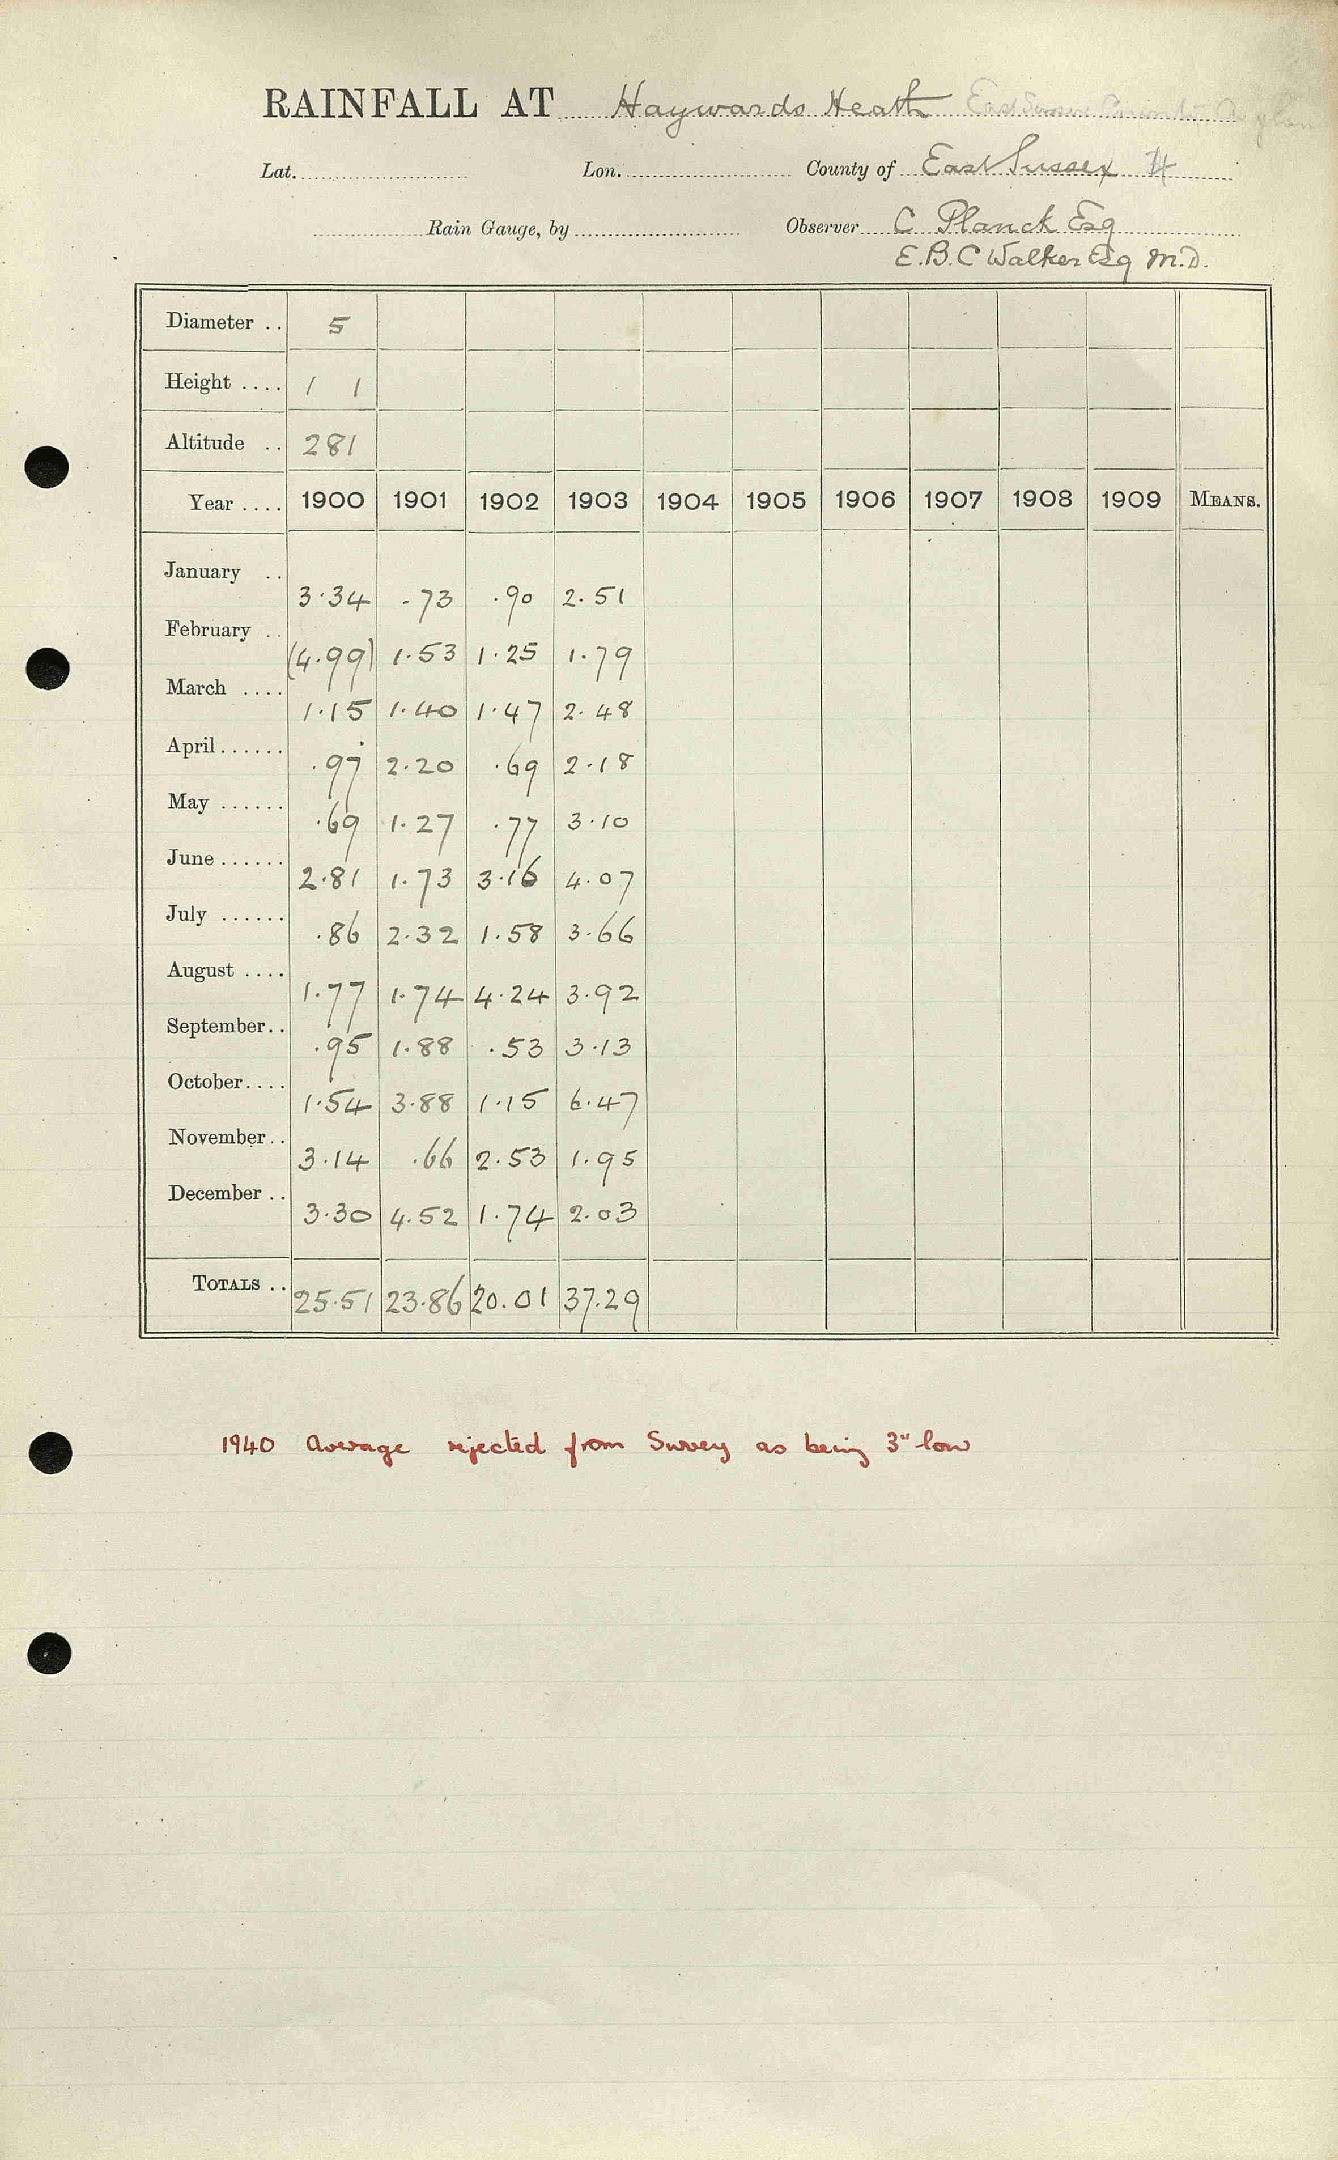 RAINFALL AT Haywards Heath East Sussex County Asylum
Lat. Lon. County of East Sussex 4
Rain Gauge, by Observer C Planck Esq
E.B.C Walker Esq M.D.
Diameter .. 5
Height .... 1 1
Altitude .. 281
Year .... 1900 1901 1902 1903 1904 1905 1906 1907 1908 1909 MEANS.
January .. 3.34 .73 .90 2.51
February .. (4.99) 1.53 1.25 1.79
March .... 1.15 1.40 1.47 2.48
April ...... .97 2.20 .69 2.18
May ...... .69 1.27 .77 3.10
June ...... 2.81 1.73 3.16 4.07
July ...... .86 2.32 1.58 3.66
August .... 1.77 1.74 4.24 3.92
September.. .95 1.88 .53 3.13
October.... 1.54 3.88 1.15 6.47
November.. 3.14 .66 2.53 1.95
December .. 3.30 4.52 1.74 2.03
TOTALS .. 25.51 23.86 20.01 37.29
1940 Average rejected from Survey as being 3" low